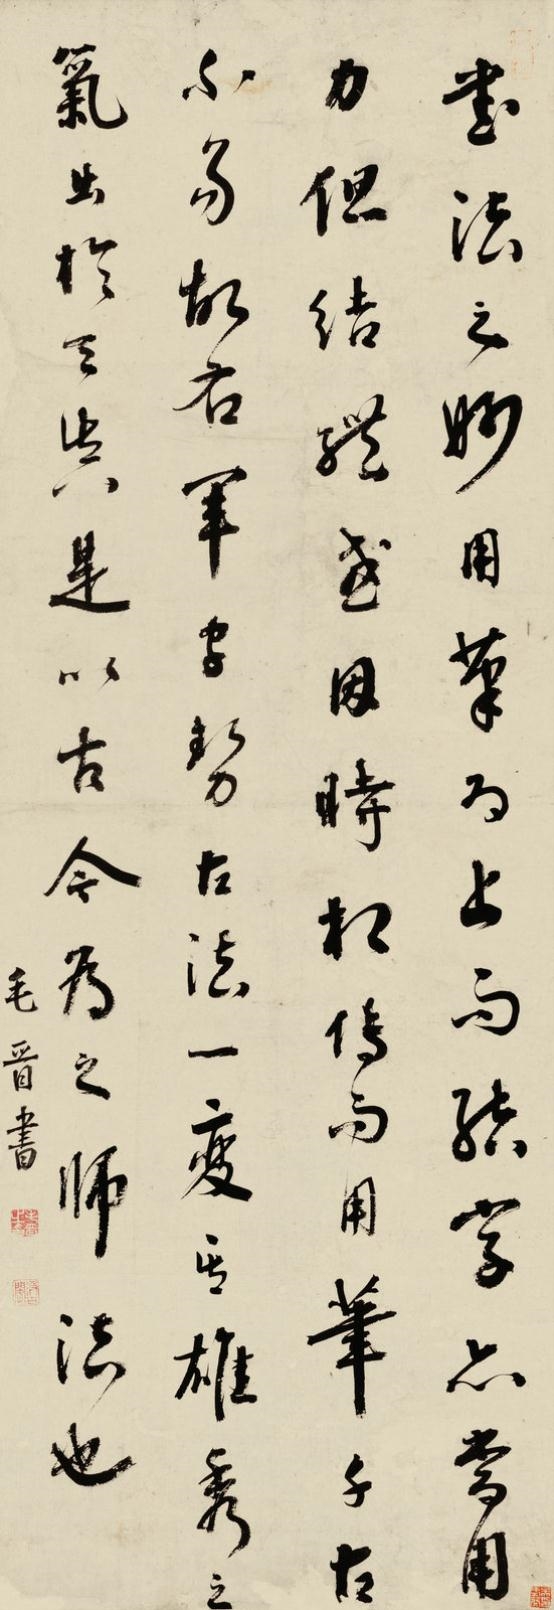 書法之妙用筆為上而結字亦當用
力但結體或因時相傳而用筆千古
不易故右軍字勢古法一變其雄秀之
氣出於天與是以古今為之師法也
毛晉書